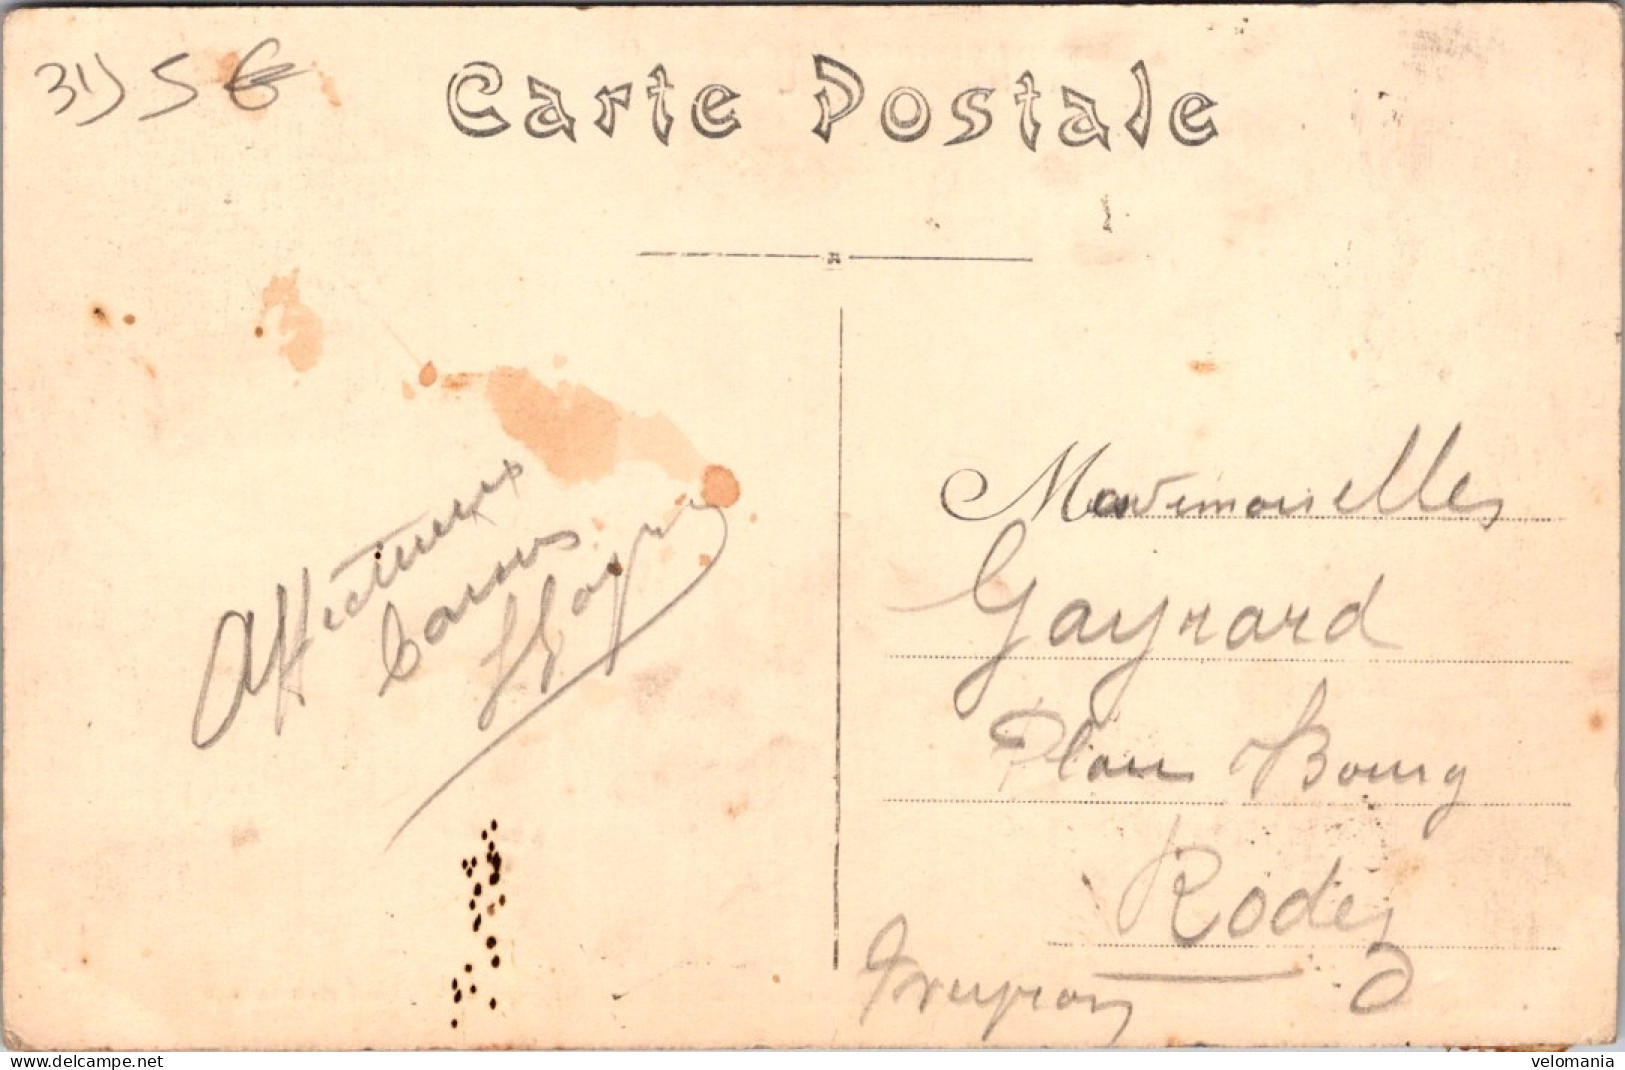 5 €
Carte Postale
Affectueux
Mademoiselles
Gayrard
Plan Bourg
Rodez
Aveyron
www.delcampe.net
velomania